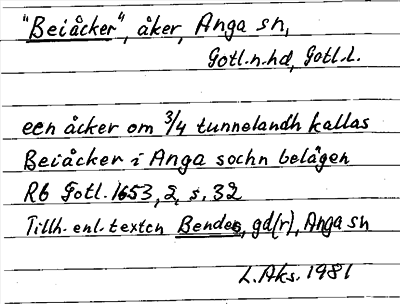 "Beiåcker", åker, Anga sn,
Gotl.n.hd, Gotl.l.
een åcker om 3/4 tunnelandh kallas
Beiåcker i Anga sochn belägen
R6 Gotl. 1653,2, s. 32
Tillh. enl. texten Bendes, gd(r), Anga sn
L.Aks. 1981